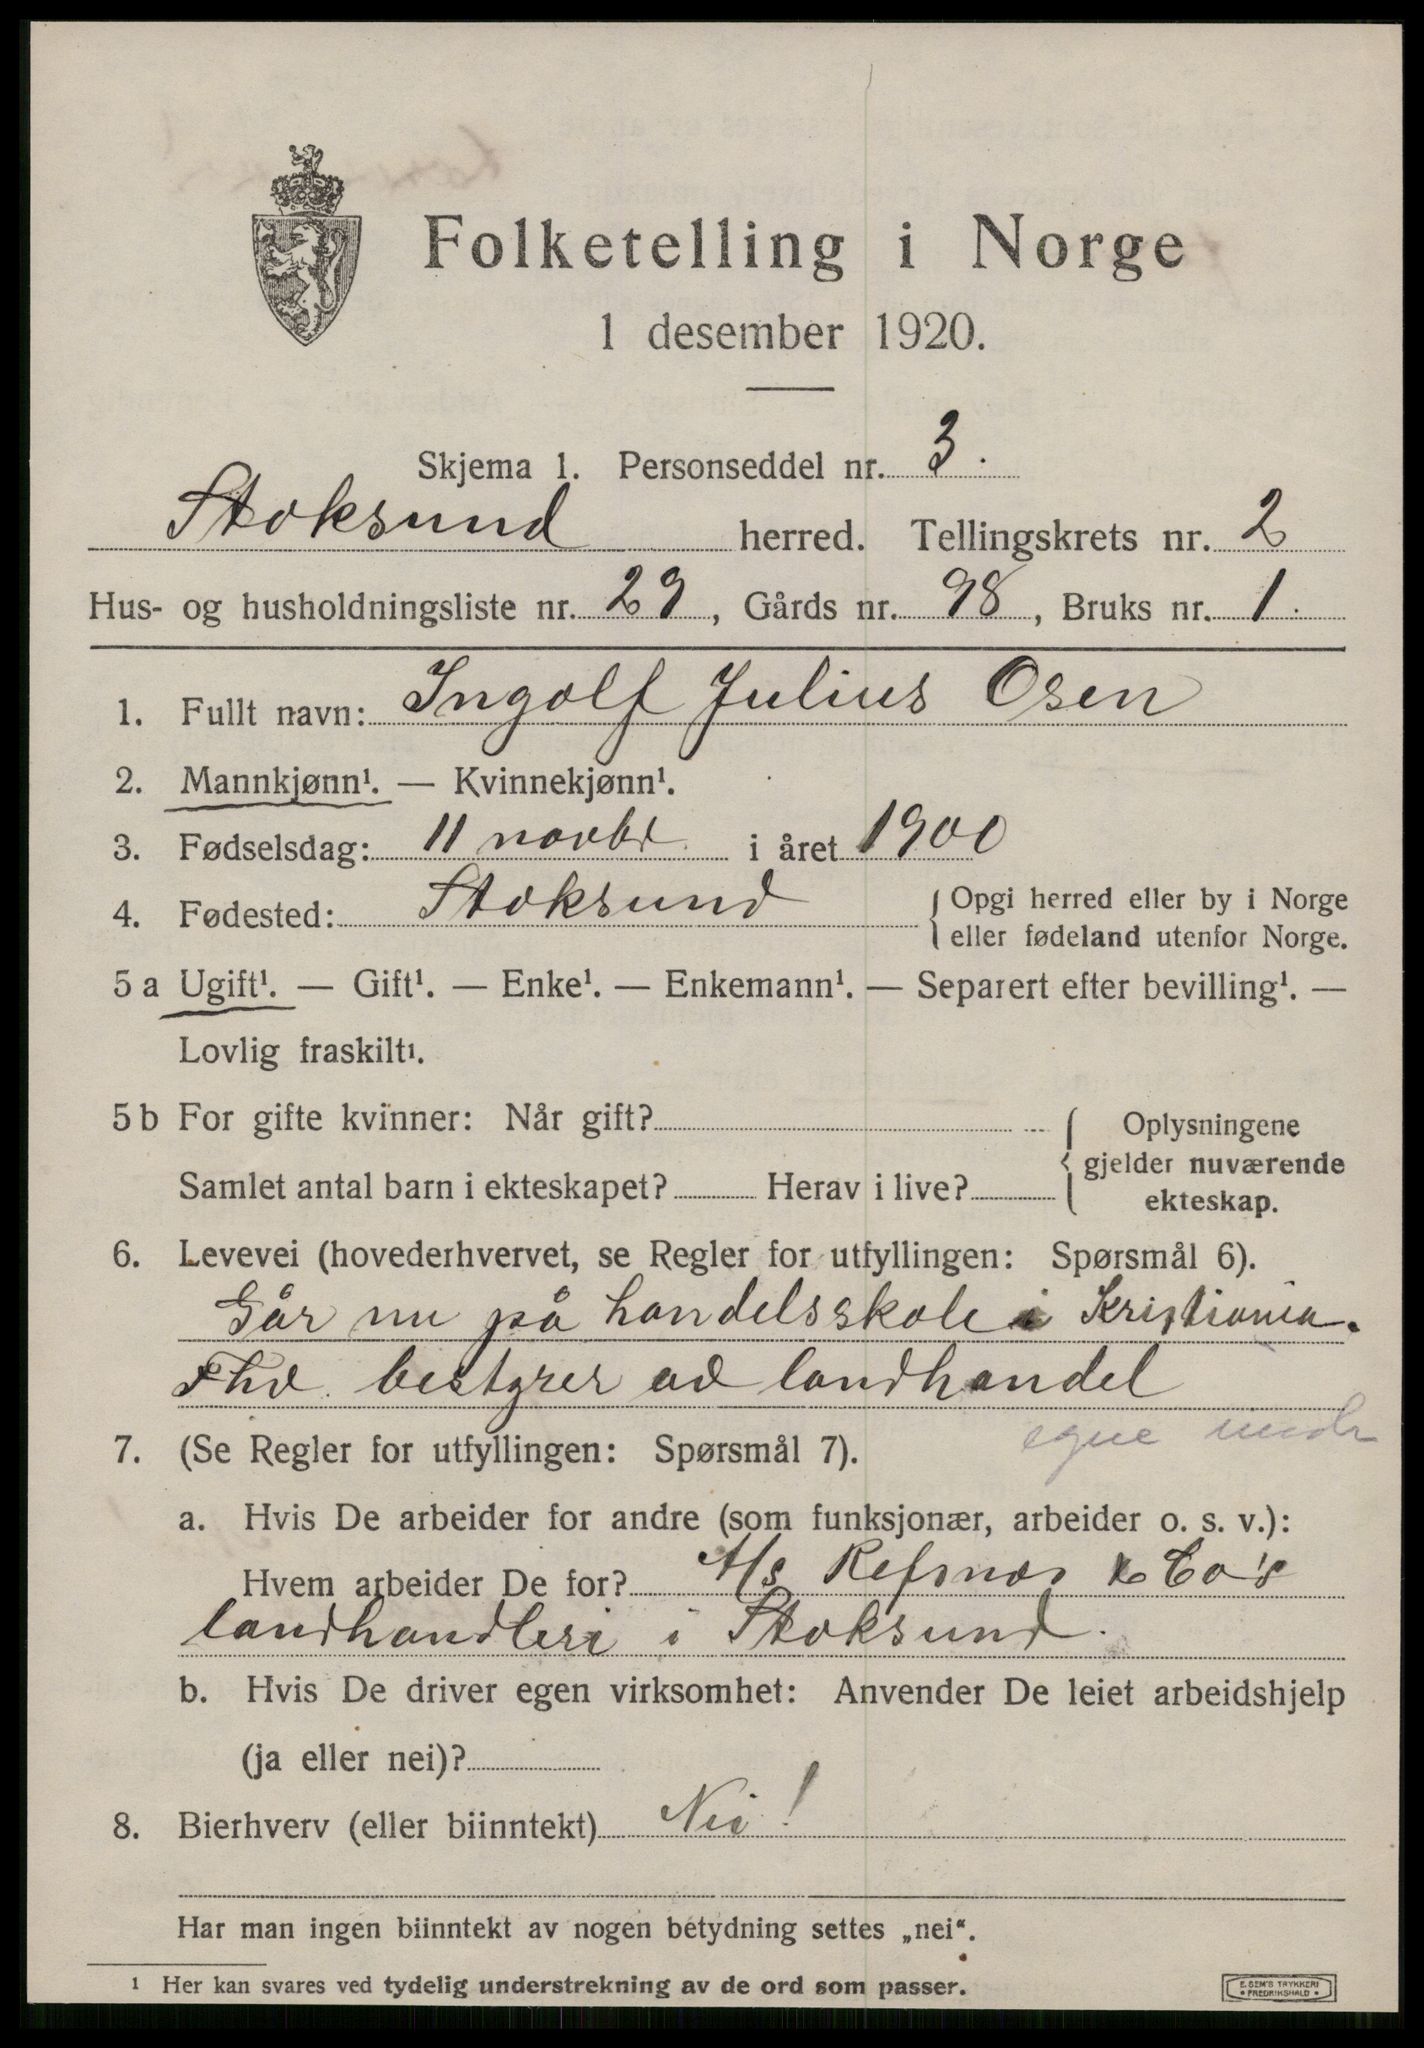 Folketelling i Norge
1 desember 1920.
Skjema 1. Personseddel nr. 3.
Stoksund herred. Tellingskrets nr. 2
Hus- og husholdningsliste nr. 29, Gårds nr. 98, Bruks nr. 1.
1. Fullt navn: Ingolf Julius Osen
2. Mannkjønn¹. — Kvinnekjønn¹.
3. Fødselsdag: 11 novbr. i året 1900
4. Fødested: Stoksund { Opgi herred eller by i Norge
eller fødeland utenfor Norge.
5 a Ugift¹. — Gift¹. — Enke¹. — Enkemann¹. — Separert efter bevilling¹. —
Lovlig fraskilt¹.
5 b For gifte kvinner: Når gift? { Oplysningene
gjelder nuværende
Samlet antal barn i ekteskapet? Herav i live?
ekteskap.
6. Levevei (hovederhvervet, se Regler for utfyllingen: Spørsmål 6).
Går nu på handelsskole i Kristiania.
Fhv. bestyrer av landhandel
egne midler
7. (Se Regler for utfyllingen: Spørsmål 7).
a. Hvis De arbeider for andre (som funksjonær, arbeider o. s. v.):
Hvem arbeider De for? A/s Refsnes & Co's
landhandleri i Stoksund.
b. Hvis De driver egen virksomhet: Anvender De leiet arbeidshjelp
(ja eller nei)?
8. Bierhverv (eller biinntekt) Nei!
Har man ingen biinntekt av nogen betydning settes „nei“.
1 Her kan svares ved tydelig understrekning av de ord som passer.
E. SEM'S TRYKKERI
• FREDRIKSHALD •